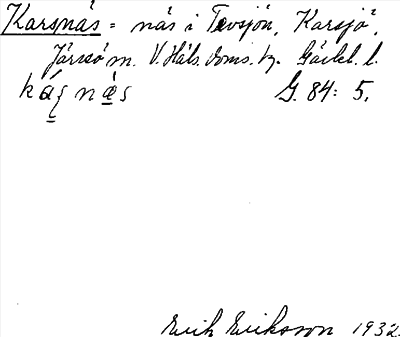 Karsnäs = näs i Tevsjön, Karsjö,
Järvsö m. V. Häls. doms. hg. Gävleb. l.
G. 84: 5.
Erik Eriksson 1932.